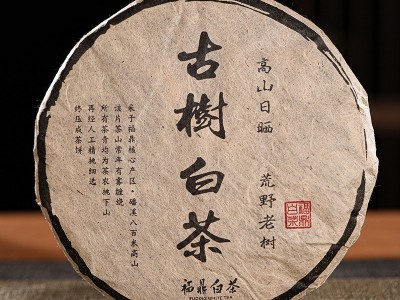 高山日晒
荒野老树
古樹白茶
采于福鼎核心产区·磻溪八百米高山
该片茶山常年有雾缭绕
所有茶青均为茶农挑下山
再经人工精挑细选
终压成茶饼
福鼎白茶
福鼎白茶
FUDING WHITE TEA